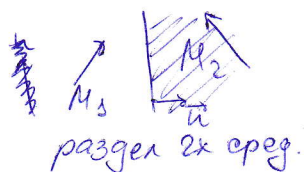 M₁
M₂
n⃗
раздел 2х сред.